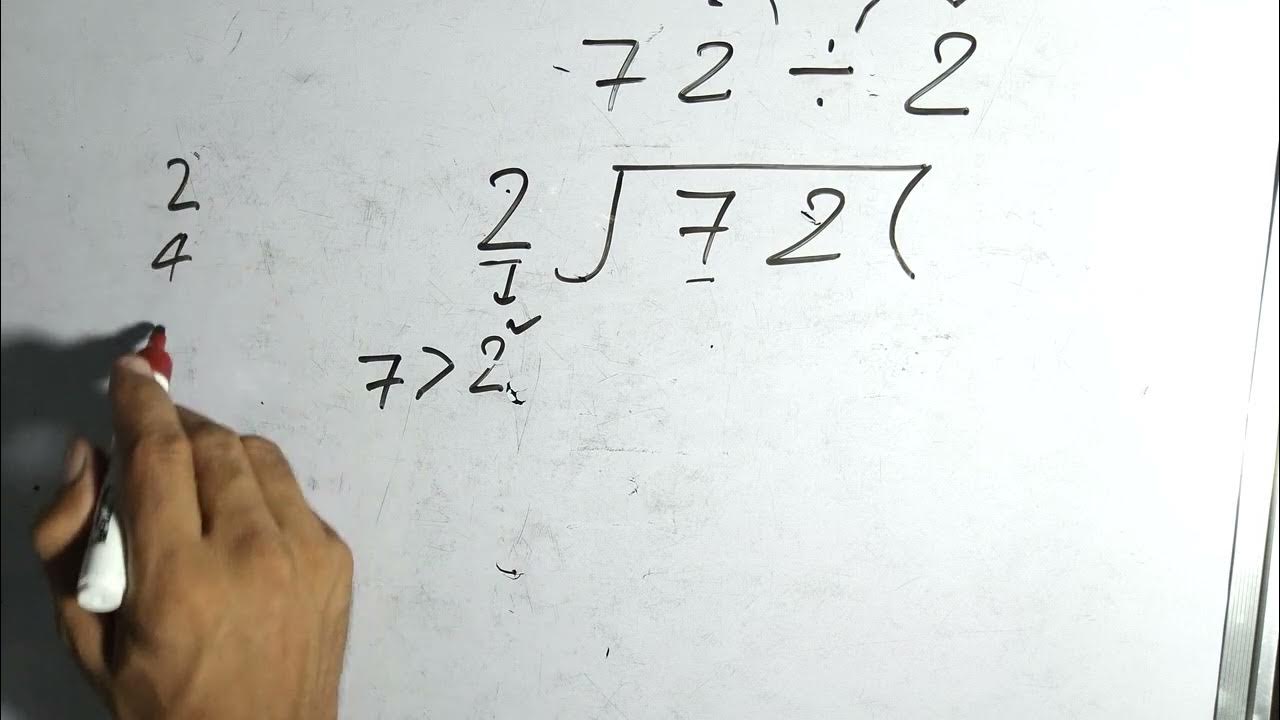 72 ÷ 2
2 √72 (
7 > 2 ✓
2
4